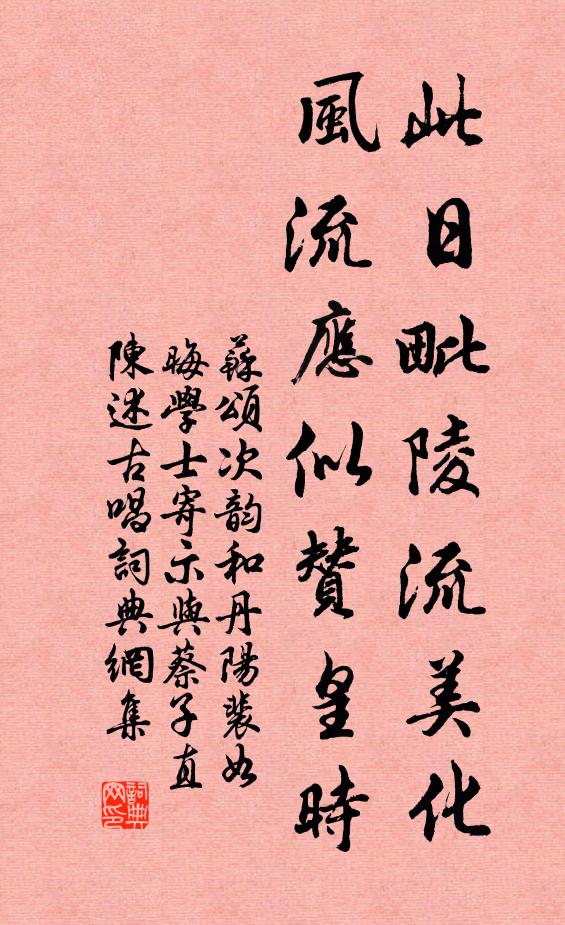 此日毗陵流美化
風流應似贊皇時
蘇頌次韵和丹陽裴如
晦學士寄示與蔡子直
陳述古唱詞典網集
詞典網印